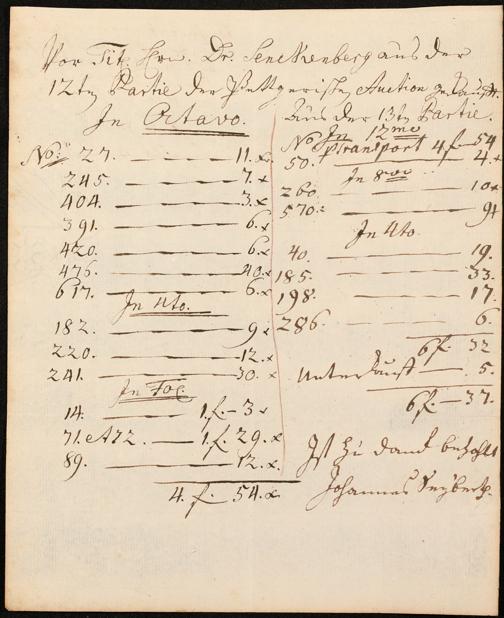 Vor Tit: Hrn. Dr. Senckenberg aus der
12ten Partie der Auction gekauft.
In Octavo.
No: 27. — 11. x
245. — 7. x
404. — 3. x
391. — 6. x
420. — 6. x
476. — 40. x
617. — 6. x
In 4to.
182. — 9 x
220. — 12. x
241. — 30. x
In Fol.
14. — 1.f. — 3 x
71. et 72. — 1.f. 29. x
89. — 12. x
4. f. 54. x
Aus der 13ten Partie.
In 12mo
No ptransport 4 f. 54
50. — 4. x
In 8vo
260 — 10 x
570. — 91
In 4to.
40. — 19.
185. — 33.
198. — 17.
286. — 6.
6 f. 32
Unterkauf — 5.
6 f. — 37.
Ist zu danck bezahlt
Johannes Seybert